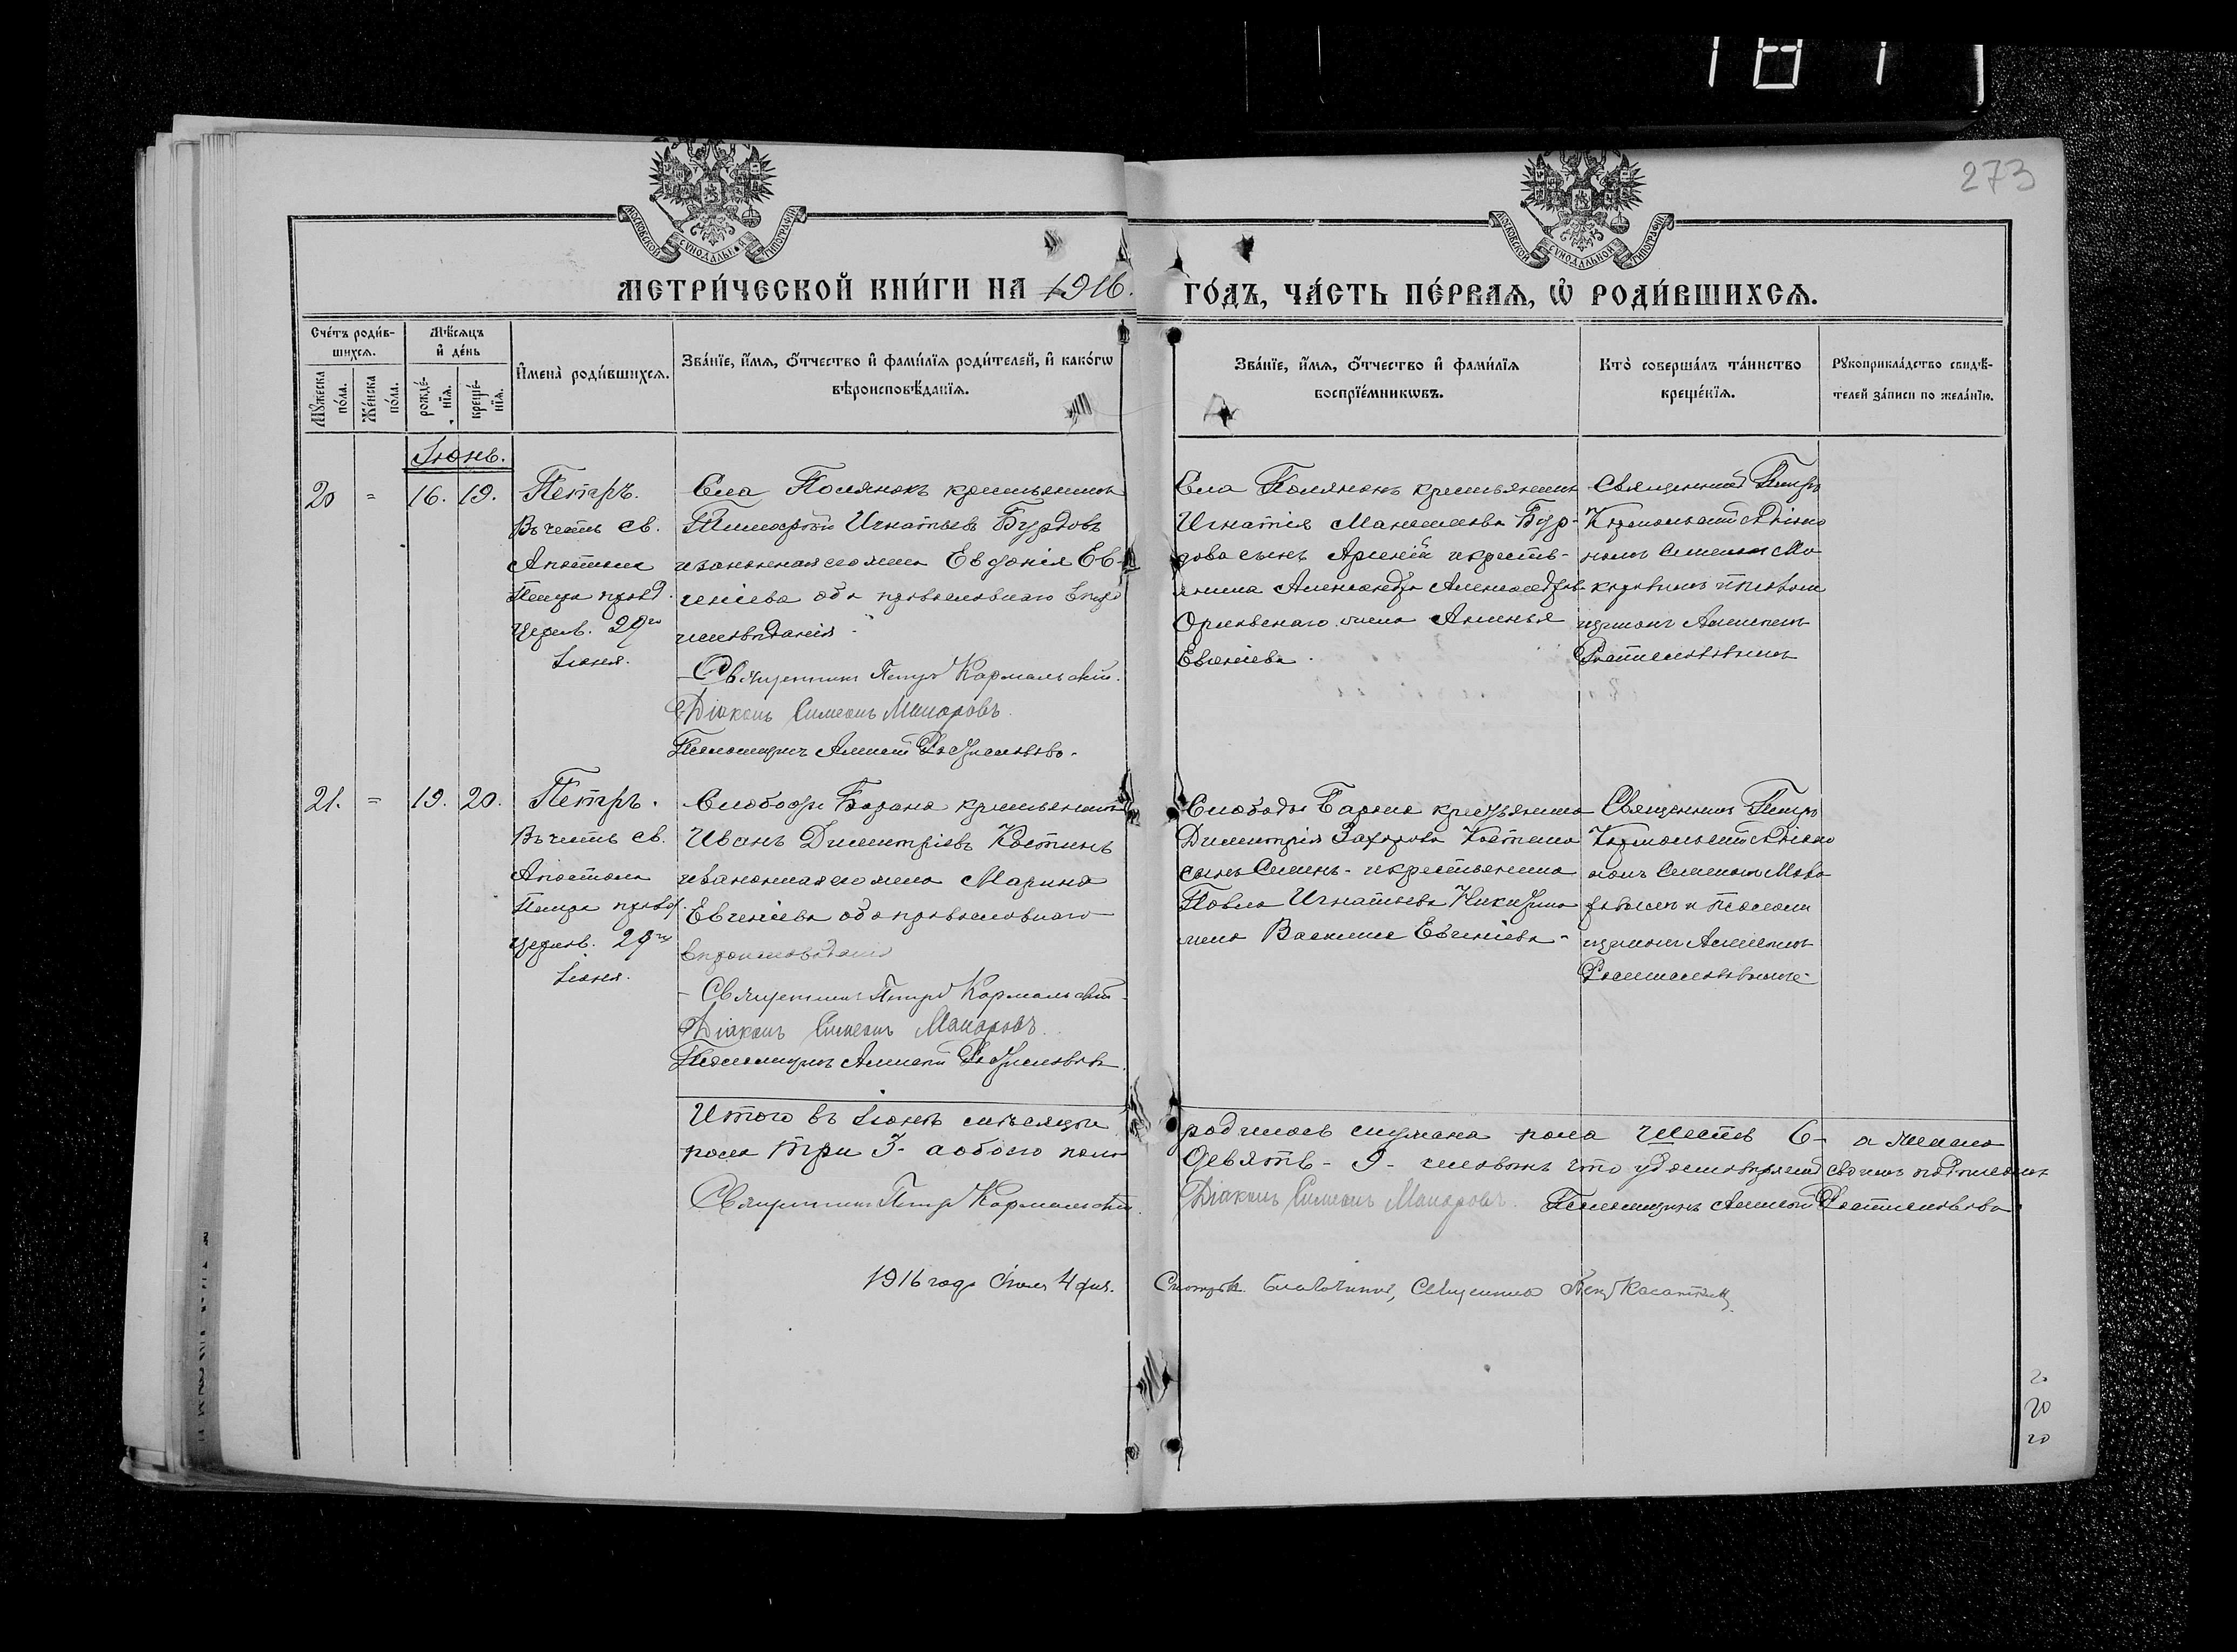 187
273
МОСКОВСКОЙ СѴНОДАЛЬНОЙ ТИПОГРАФІИ
МОСКОВСКОЙ СѴНОДАЛЬНОЙ ТИПОГРАФІИ
МЕТРИ́ЧЕСКОЙ КНИ́ГИ НА 1916.
ГО́ДЪ, ЧА́СТЬ ПЕ́РВАЯ, Ѡ҆ РОДИ́ВШИХСЯ.
Сче́тъ роди́в-
шихся.
Мꙋ́жеска
по́ла.
Же́нска
по́ла.
Мѣ́сяцъ
и҆ де́нь
рожде́-
нїя.
креще́-
нїя.
И҆мена̀ роди́вшихся.
Зва́нїе, и҆́мя, ѻ҆́тчество и҆ фами́лїя роди́телей, и҆ како́гѡ
вѣроисповѣ́данїя.
Зва́нїе, и҆́мя, ѻ҆́тчество и҆ фами́лїя
воспрїе́мникѡвъ.
Кто̀ соверша́лъ та́инство
креще́нїя.
Рꙋкоприкла́дство свидѣ́-
телей за́писи по жела́нїю.
Іюнь.
20 = 16. 19.
Петръ.
Въ честь св.
Апостола
Петра празд.
церков. 29го
Іюня.
Села Полянокъ крестьянинъ
Тимофей Игнатьевъ Бурдовъ
и законная его жена Евдокія Ев-
геніева оба православнаго вѣро
исповѣданія.
Священникъ Петръ Кармальскій.
Діаконъ Симеонъ Макаровъ.
Псаломщикъ Алексей
Села Полянокъ крестьянина
Игнатія Бур-
дова сынъ Арсеній и кресть-
янина Александра Александрова
жена Аксинья
Евгеніева.
Священникъ Петръ
Кармальскій съ діако
номъ Симеономъ Ма
каровымъ и псалом
щикомъ Алексеемъ
21. = 19. 20.
Петръ.
Въ честь св.
Апостола
Петра празд.
церков. 29го
Іюня.
Слободы крестьянинъ
Иванъ Димитріевъ Костинъ
и законная его жена Марина
Евгеніева оба православнаго
вѣроисповѣданія
Священникъ Петръ Кармальскій.
Діаконъ Симеонъ Макаровъ.
Псаломщикъ Алексей
Слободы крестьянина
Димитрія Захарова Костина
сынъ Семенъ - и крестьянина
Павла Игнатьева Никитина
жена Василиса Евгеніева -
Священникъ Петръ
Кармальскій съ діако
номъ Симеономъ Мака
ровымъ и псалом
щикомъ Алексеемъ
Итого въ Іюнѣ мѣсяцѣ родилось мужска пола шесть 6 - а женска
пола три 3 - а обоего пола девять - 9 - человѣкъ что удостовѣряемъ своимъ подписомъ
Священникъ Петръ Кармальскій. Діаконъ Симеонъ Макаровъ. Псаломщикъ Алексей
1916 года Іюля 4 дня. Благочинный, Священникъ
20
20
20